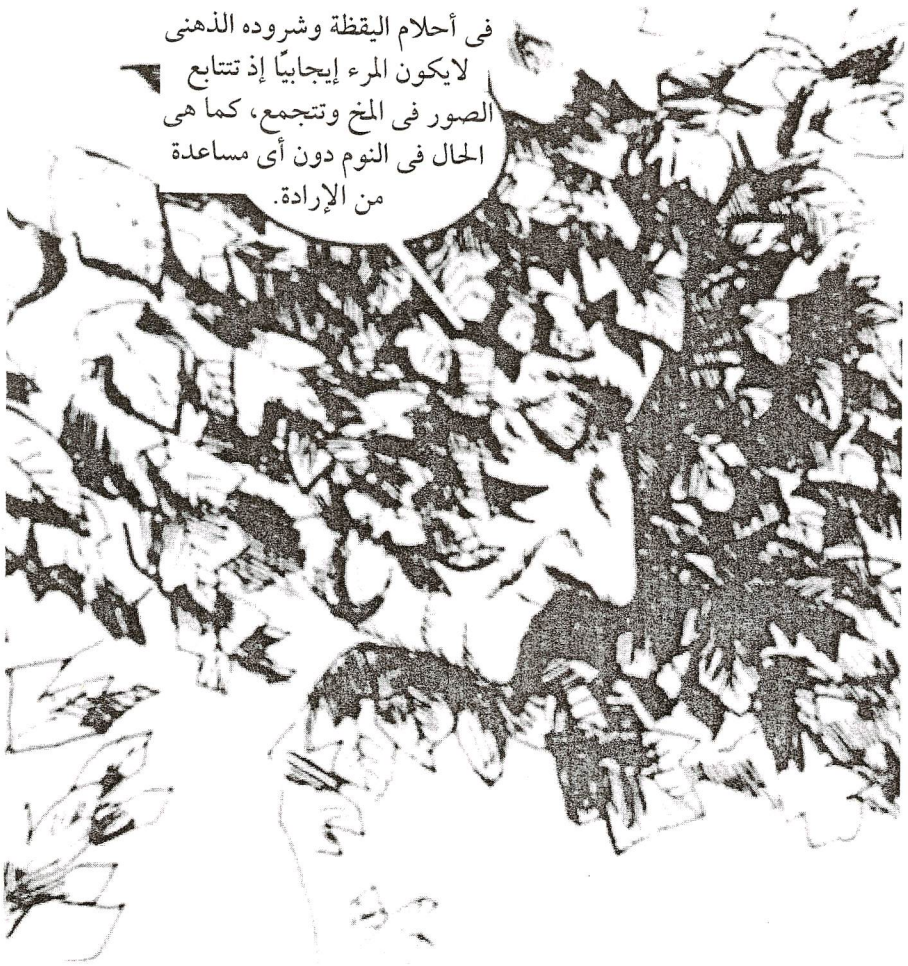 فى أحلام اليقظة وشروده الذهنى
لايكون المرء إيجابيًّا إذ تتتابع
الصور فى المخ وتتجمع، كما هى
الحال فى النوم دون أى مساعدة
من الإرادة.